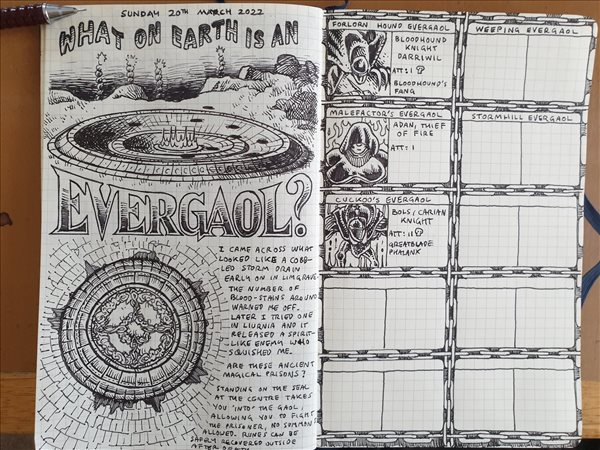 SUNDAY 20TH MARCH 2022
WHAT ON EARTH IS AN
EVERGAOL?
I CAME ACROSS WHAT
LOOKED LIKE A COBB-
LED STORM DRAIN
EARLY ON IN LIMGRAVE
THE NUMBER OF
BLOOD-STAINS AROUND
WARNED ME OFF.
LATER I TRIED ONE
IN LIURNIA AND IT
RELEASED A SPIRIT-
LIKE ENEMY WHO
SQUISHED ME.
ARE THESE ANCIENT
MAGICAL PRISONS?
STANDING ON THE SEAL
AT THE CENTRE TAKES
YOU 'INTO' THE GAOL,
ALLOWING YOU TO FIGHT
THE PRISONER, NO SUMMONS
ALLOWED. RUNES CAN BE
SAFELY RECOVERED OUTSIDE
AFTER DEATH
FORLORN HOUND EVERGAOL
BLOODHOUND
KNIGHT
DARRIWIL
ATT: 1
BLOODHOUND'S
FANG
WEEPING EVERGAOL
MALEFACTOR'S EVERGAOL
ADAN, THIEF
OF FIRE
ATT: 1
STORMHILL EVERGAOL
CUCKOO'S EVERGAOL
BOLS, CARIAN
KNIGHT
ATT: 11
GREATBLADE
PHALANX